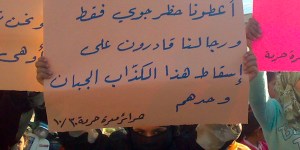 أعطونا حظر جوي فقط
ورجالنا قادرون على
إسقاط هذا الكذّاب الجبان
وحدهم
حرائر معرة حرمة ١٠/٣٠
ونحن
حرة